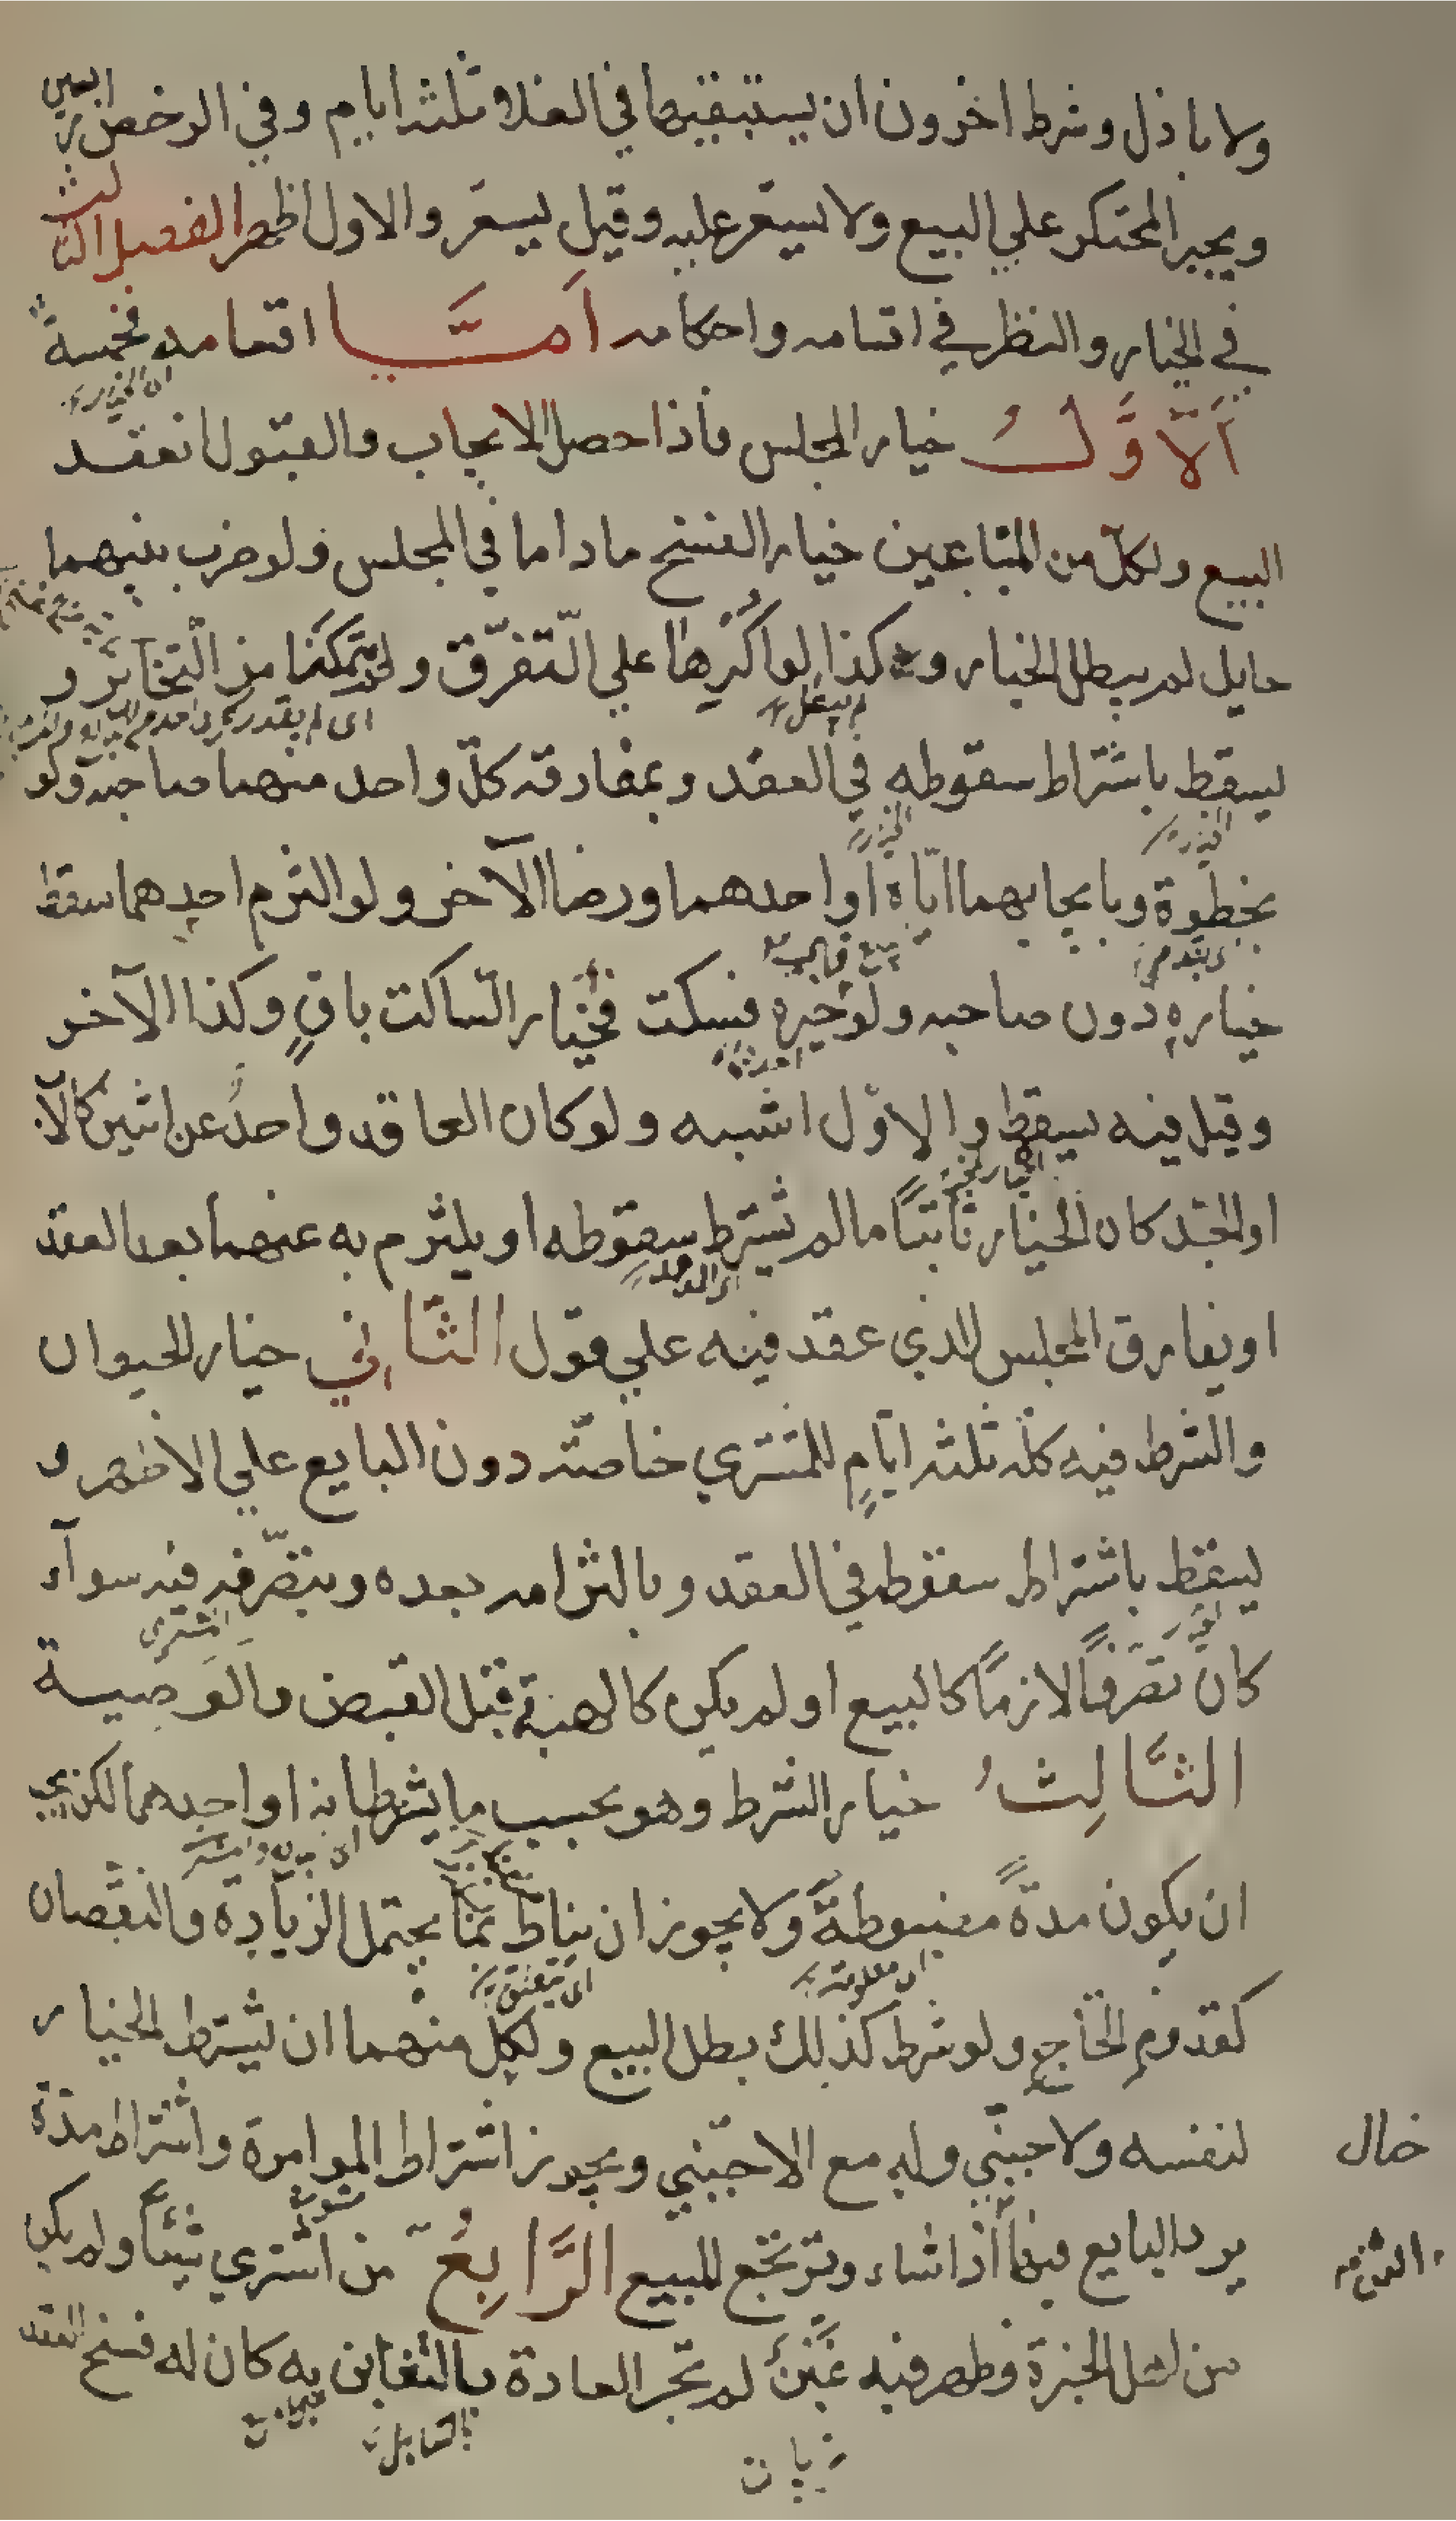 ولا باذل وشرط اخرون ان يستبقيها في الغلاء ثلثه ايام وفي الرخص اربعين
ويجبر المحتكر علي البيع ولا يسعر عليه وقيل يسعر والاول اظهر الفصل الثالث
في الخيار والنظر في اقسامه واحكامه اَمَّا اقسامه فخمسةٌ
اَلاَوَّلُ خيار المجلس فاذا حصل الايجاب والقبول انعقد
البيع ولكل من المتباعين خيار الفسخ ماداما في المجلس ولو ضرب بينهما
حايل لم يبطل الخيار وكذا لو اكرها علي التفرق ولم يتمكنا من التخاير و
يسقط باشتراط سقوطه في العقد وبمفارقة كل واحد منهما صاحبه ولو
بخطوة وبايجابهما اياه او احدهما ورضا الآخر ولو التزم احدهما سقط
خياره دون صاحبه ولو خيره فسكت فخيار الساكت باقٍ وكذا الآخر
وقيل فيه يسقط والاول اشبه ولو كان العاقد واحدًا عن اثنين كالاب
او الجد كان الخيار ثابتًا ما لم يشترط سقوطه او يلتزم به عنهما بعد العقد
او يفارق المجلس الذي عقد فيه علي قول الثَّاني خيار الحيوان
والشرط فيه كله ثلثه ايامٍ للمشتري خاصته دون البايع علي الاظهر و
يسقط باشتراط سقوطه في العقد وبالتزامه بعده وبتصرفه فيه سوآء
كان تصرفًا لازمًا كالبيع او لم يكن كالهبة قبل القبض والوصية
الثَّالِثُ خيار الشرط وهو بحسب ما يشترطانه او احدهما لكن يجب
ان يكون مدةً مضبوطةً ولا يجوز ان يناط بما يحتمل الزيادة والنقصان
كقدوم الحاج ولو شرط كذلك بطل البيع ولكل منهما ان يشترط الخيار
لنفسه ولاجنبي وله مع الاجنبي ويجوز اشتراط الموامرة واشتراط مدة
يرد البايع فيها اذا شاء ويرتجع للبيع الرَّابِعُ من اشتري شيئًا ولم يكن
من اهل الخبرة وظهر فيه غبن لم تجر العادة بالتغابن به كان له فسخ العقد